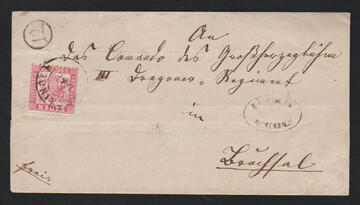 12
An
das Comando des Großherzoglichen
III Dragoner-Regiment
in
Bruchsal
frei